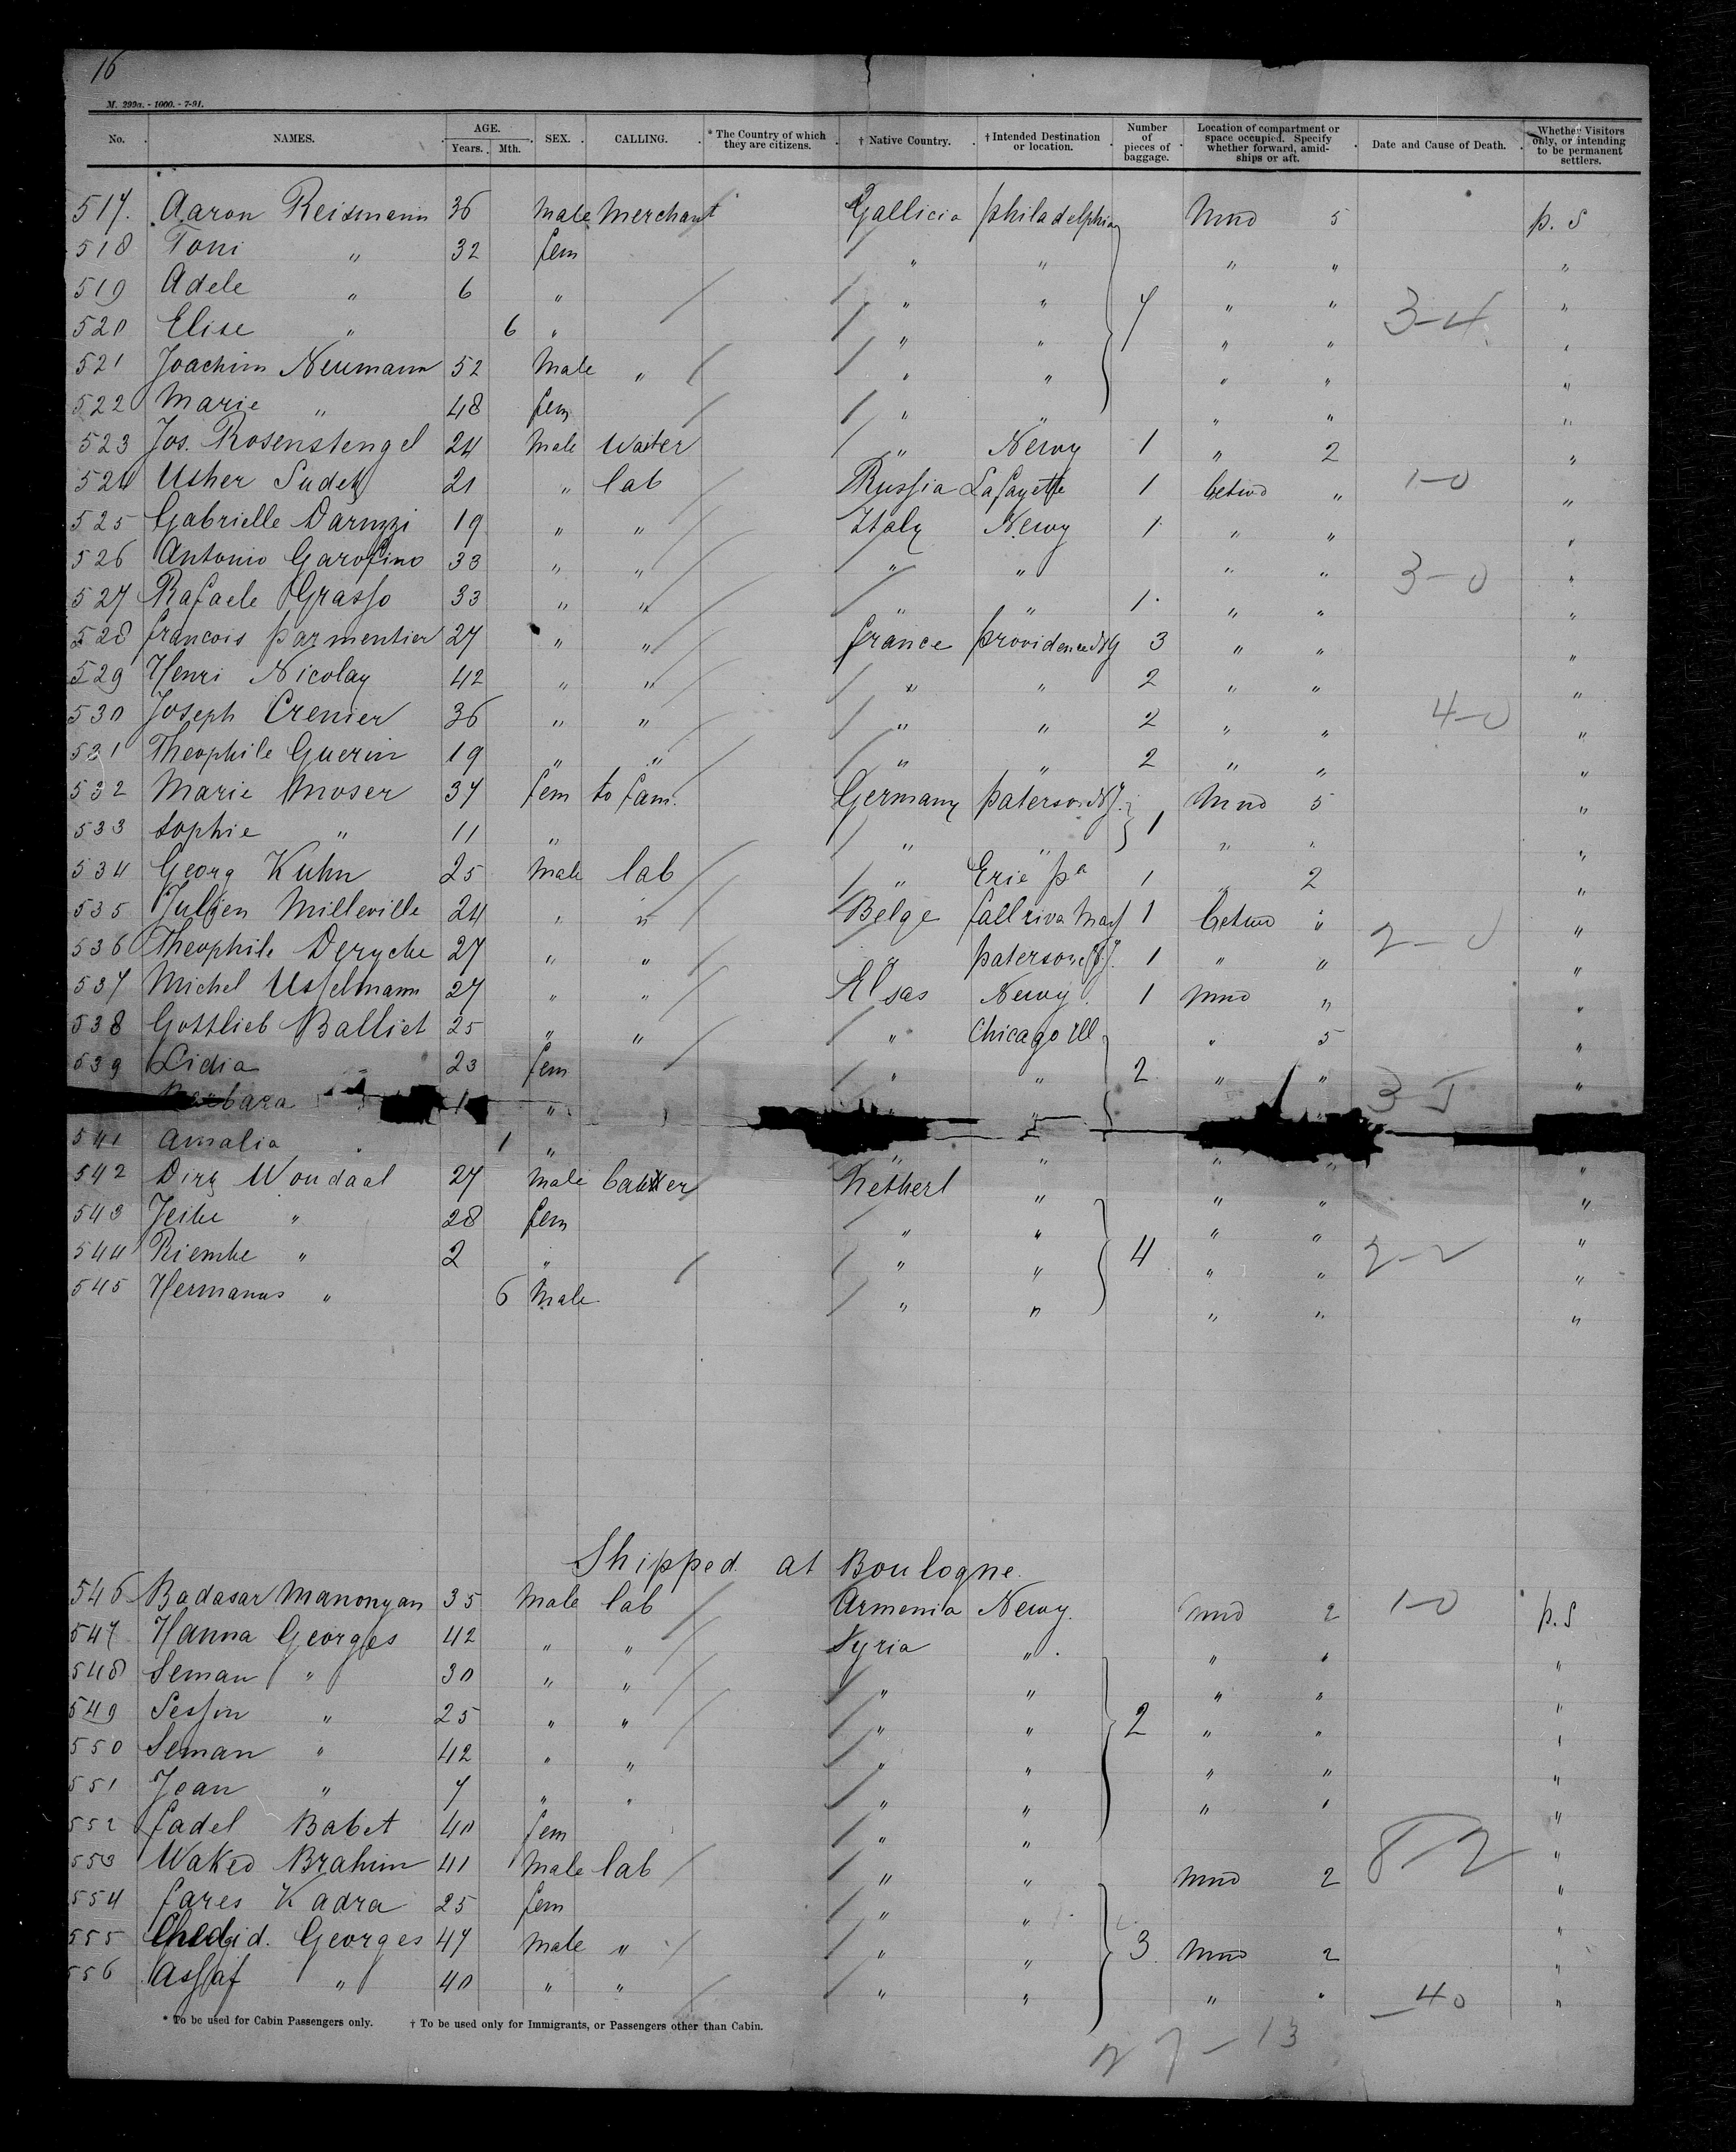 16
M. 299a. - 1000. - 7-91.
No. NAMES. AGE. Years. Mth. SEX. CALLING. * The Country of which they are citizens. † Native Country. † Intended Destination or location. Number of pieces of baggage. Location of compartment or space occupied. Specify whether forward, amidships or aft. Date and Cause of Death. Whether Visitors only, or intending to be permanent settlers.
517. Aaron Reismann 36 male Merchant Gallicia philadelphia 5 p. S
518 Toni " 32 fem " " " " "
519 Adele " 6 " " " 7 " " 3-4 "
520 Elise " 6 " " " " " "
521 Joachim Neumann 52 Male " " " " " "
522 Marie " 48 fem " " " " "
523 Jos. Rosenstengel 24 Male Waiter " Newy 1 " 2 "
524 Usher Sudek 21 " lab Russia Lafayette 1 betwd " 1-0 "
525 Gabrielle Daruzzi 19 " " Italy Newy 1 " " "
526 Antonio Garofino 33 " " " " " " 3-0 "
527 Rafaele Grasso 33 " " " " 1 " " "
528 francois parmentier 27 " " france providence 3 " " "
529 Henri Nicolay 42 " " " " 2 " " "
530 Joseph Crenier 36 " " " " 2 " " 4-0 "
531 Theophile Guerin 19 " " " " 2 " " "
532 Marie Moser 37 fem to fam. Germany paterson NJ. 5 "
533 Sophie " 11 " " " 1 " " "
534 Georg Kuhn 25 Male lab " Erie pa 1 " 2 "
535 Julien Milleville 24 " " Belge fallriva Mass 1 betwd " "
536 Theophile Deryche 27 " " " paterson NJ. 1 " " 2-0 "
537 Michel Usselmann 27 " " Elsas Newy. 1 " "
538 Gottlieb Balliet 25 " " " Chicago Ill " 5 "
539 Lidia 23 fem " " 2 " " "
Barbara 1 " " 3-
541 Amalia 1 " " " " "
542 Dirk Woudaal 27 Male Netherl " " " "
543 " 28 fem " " " " "
544 Riemke " 2 " " " 4 " " 2-2 "
545 Hermanus " 6 Male " " " " "
Shipped at Boulogne.
546 Badasar Manonyan 35 Male lab Armenia Newy. 2 1-0 p. S
547 Hanna Georges 42 " " Syria " " " "
548 Seman " 30 " " " " " " "
549 " 25 " " " " 2 " " "
550 Seman " 42 " " " " " " "
551 Jean " 7 " " " " " " "
552 fadel Babet 40 fem " " "
553 Waked Brahim 41 Male lab " " 2 8-2 "
554 fares Kadra 25 fem " " "
555 Chedid. Georges 47 Male " " " 3 2 "
556 Assaf " 40 " " " " " " "
40
* To be used for Cabin Passengers only. † To be used only for Immigrants, or Passengers other than Cabin.
27-13